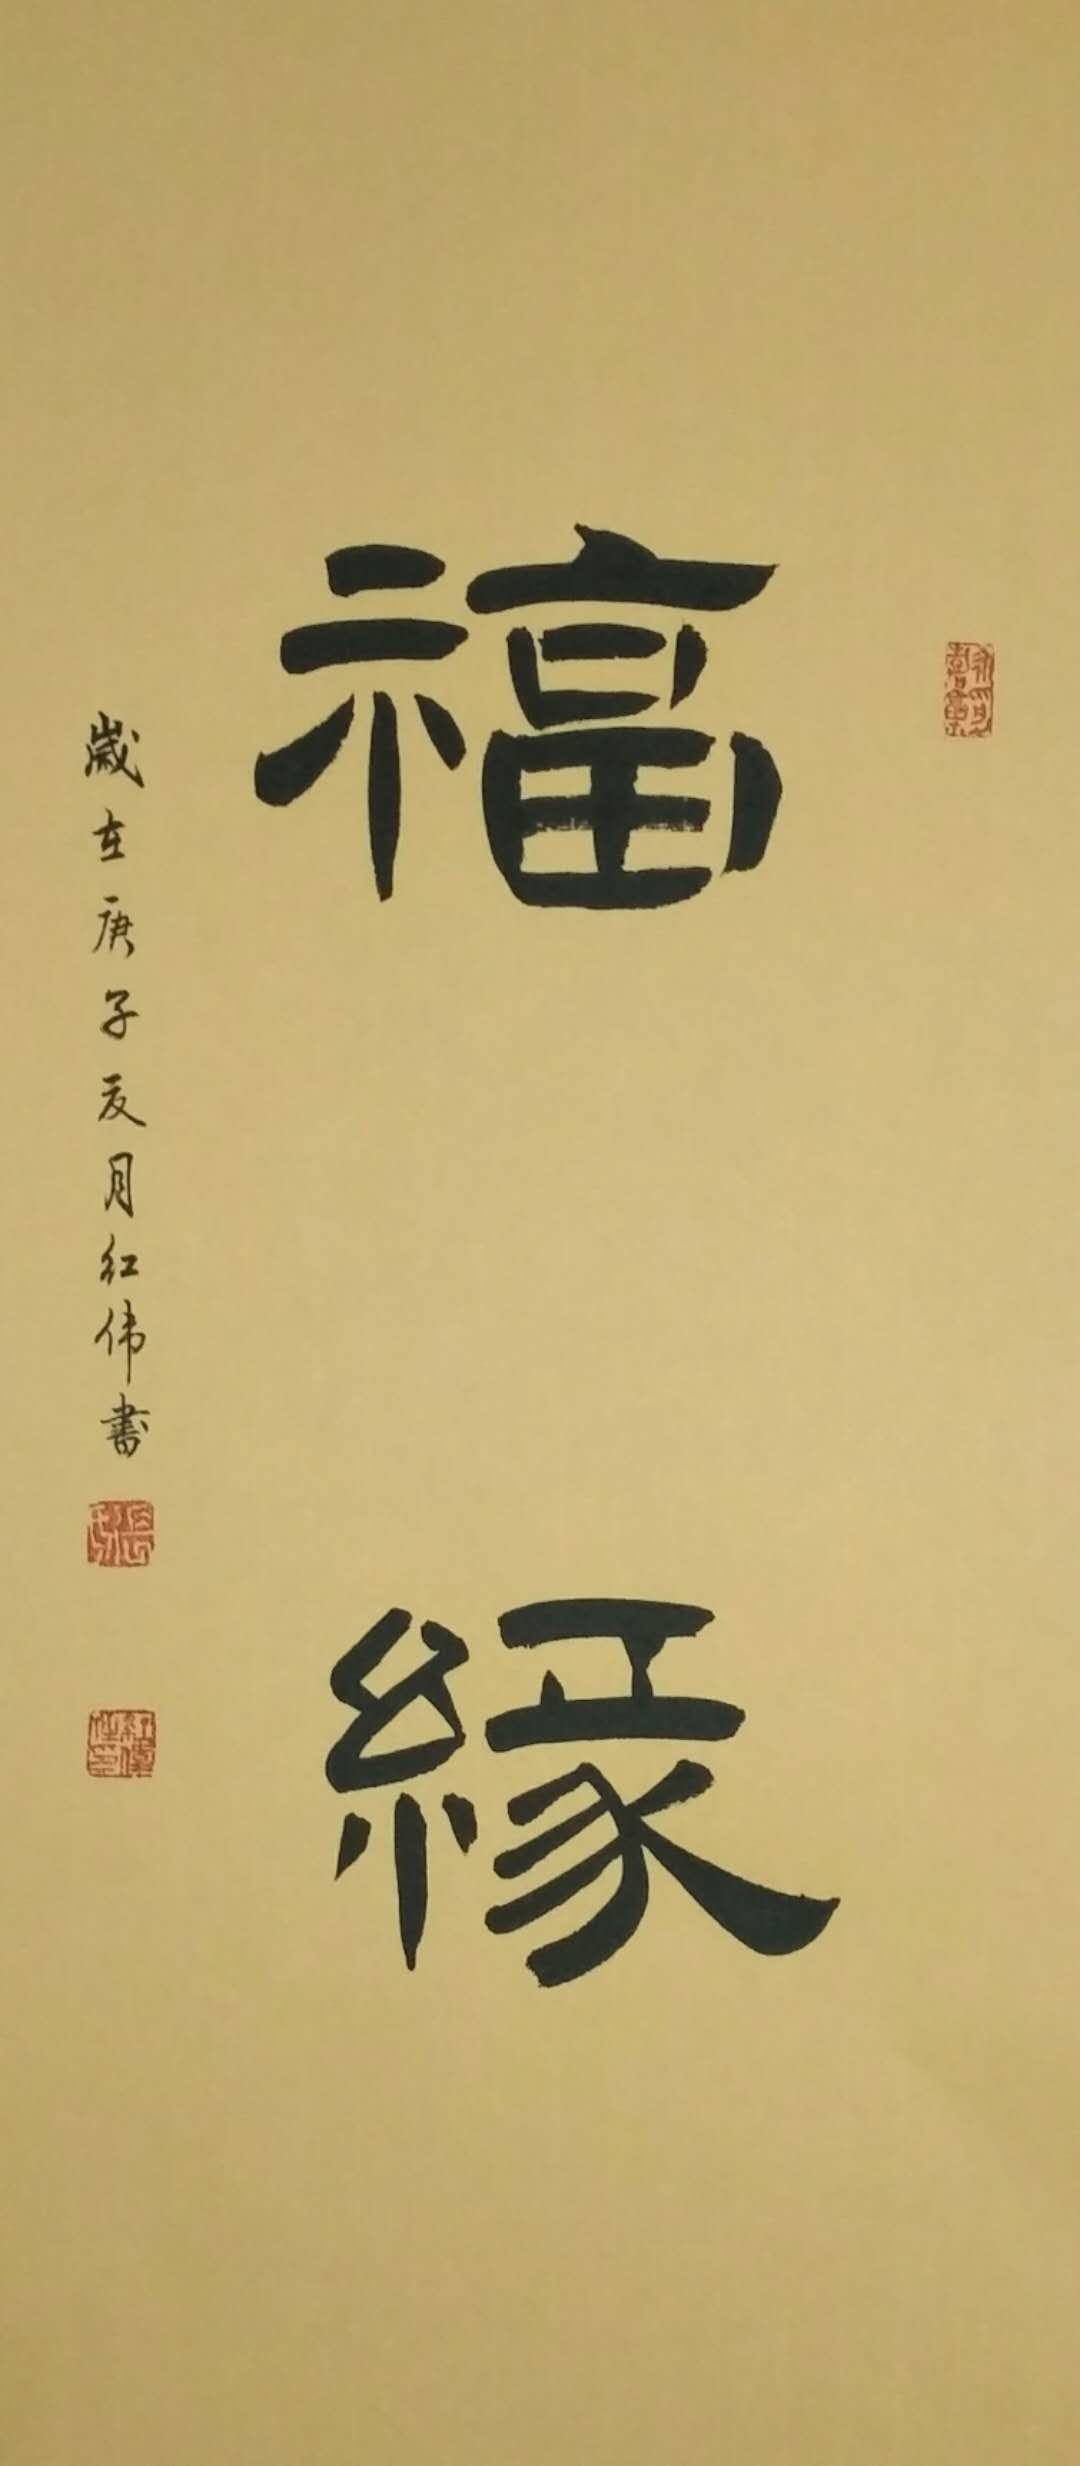 福緣
歲在庚子夏月红伟書